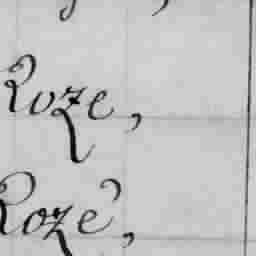 Roze,
Roze,